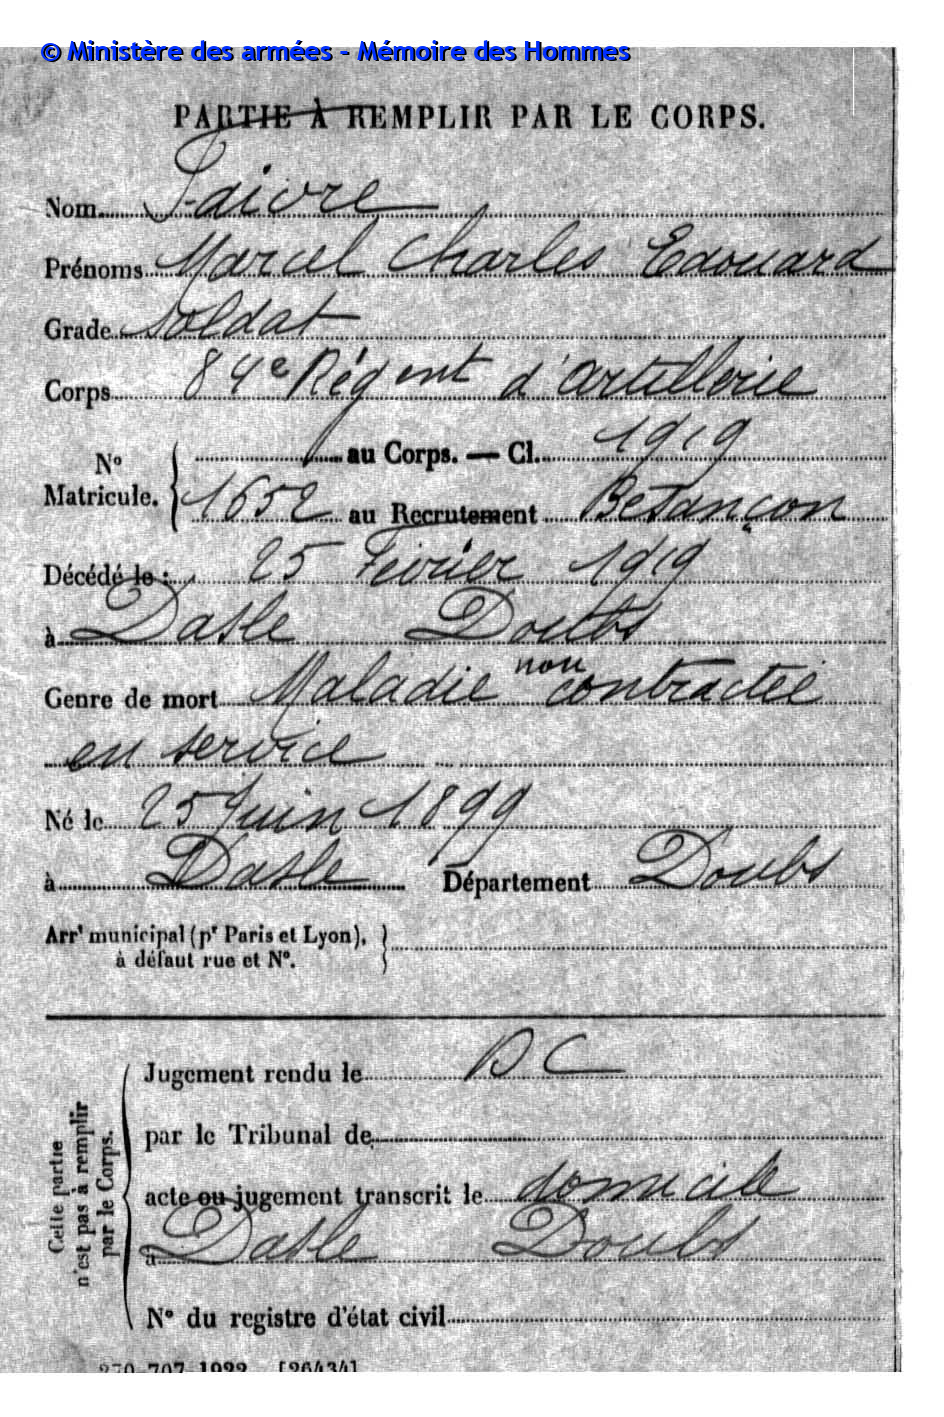 © Ministère des armées - Mémoire des Hommes
PARTIE À REMPLIR PAR LE CORPS.
Nom Faivre
Prénoms Marcel Charles Edouard
Grade Soldat
Corps 84e Régent d'Artillerie
N° Matricule. { au Corps. — Cl. 1919
1652 au Recrutement Besançon
Décédé le : 25 Février 1919
à Dasle Doubs
Genre de mort Maladie non contractée
en service
Né le 25 Juin 1899
à Dasle Département Doubs
Arrt municipal (pr Paris et Lyon), à défaut rue et N°. }
Cette partie n'est pas à remplir par le Corps.
Jugement rendu le DC
par le Tribunal de
acte ou jugement transcrit le domicile
à Dasle Doubs
N° du registre d'état civil
270-707-1922. [26434]